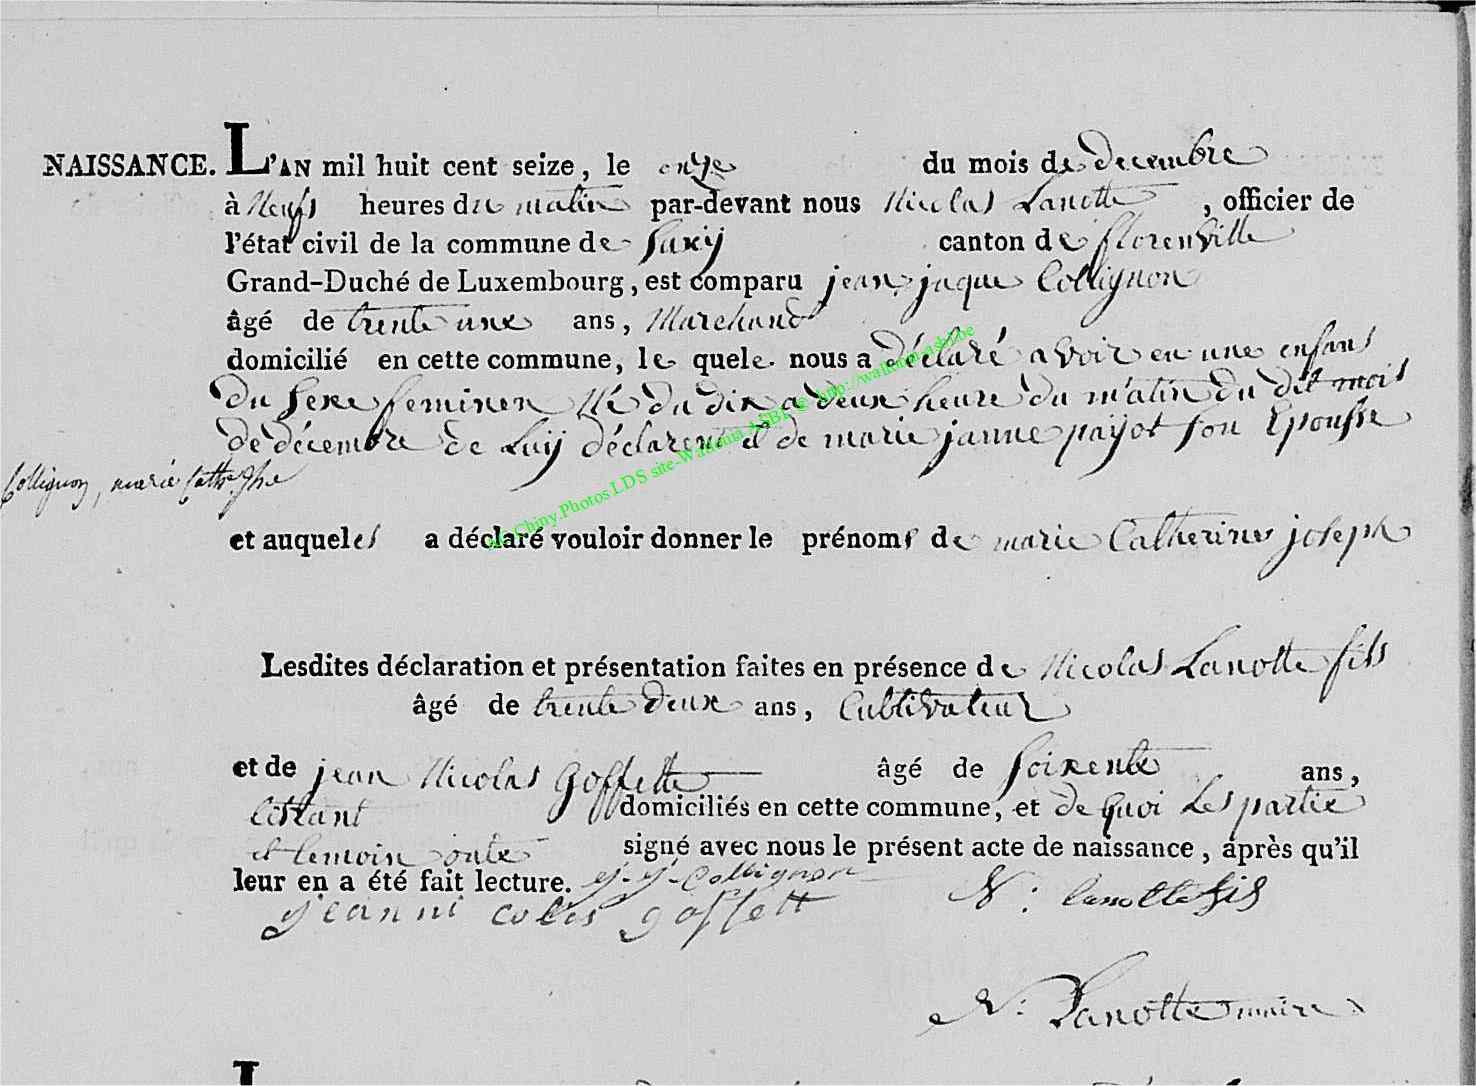 NAISSANCE. L'AN mil huit cent seize, le onze du mois de decembre
à Neufs heures du matin par-devant nous Nicolas Lanotte, officier de
l'état civil de la commune de Jaxij canton de florenville
Grand-Duché de Luxembourg, est comparu jean jaque Collignon
âgé de trente une ans, Marchand
domicilié en cette commune, le quele nous a déclaré avoir eu une enfans
du Sexe feminen Né du dix a deux heure du matin du dit mois
de décembre de Luij déclarent et de marie janne payot son Epousse
Collignon, marie Cathe Jphe
et auqueles a déclaré vouloir donner le prénoms de marie Catherines joseph
Lesdites déclaration et présentation faites en présence de Nicolas Lanotte fils
âgé de trente deux ans, Cultivateur
et de jean Nicolas Goffette âgé de Soixente ans,
domiciliés en cette commune, et de quoi Les partie
et temoin onte signé avec nous le présent acte de naissance, après qu'il
leur en a été fait lecture. j-j-collignon
jeanni colas goffett N: lanotte fils
N: Lanotte maire
AC Chiny.Photos LDS site-Wallonia ASBL © http://wallonia-asbl.be